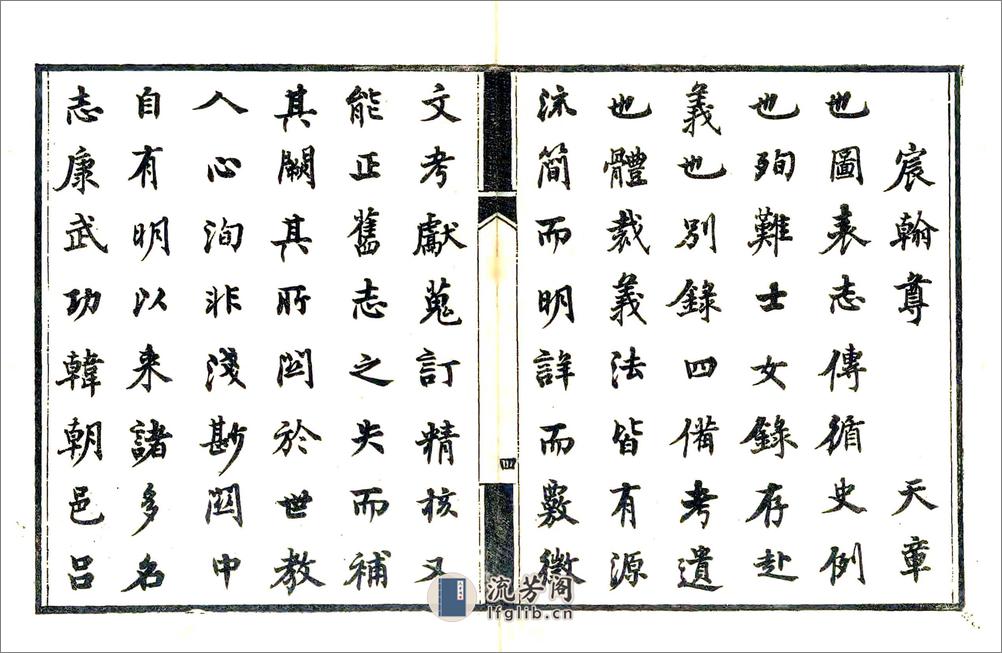 宸翰尊　天章
也圖表志傳循史例
也殉難士女錄存赴
義也別錄四備考遺
也體裁義法皆有源
流簡而明詳而覈徵
四
文考獻蒐訂精核又
能正舊志之失而補
其闕其所関於世教
人心洵非淺尠関中
自有明以来諸多名
志康武功韓朝邑呂
流芳阁
lfglib.cn